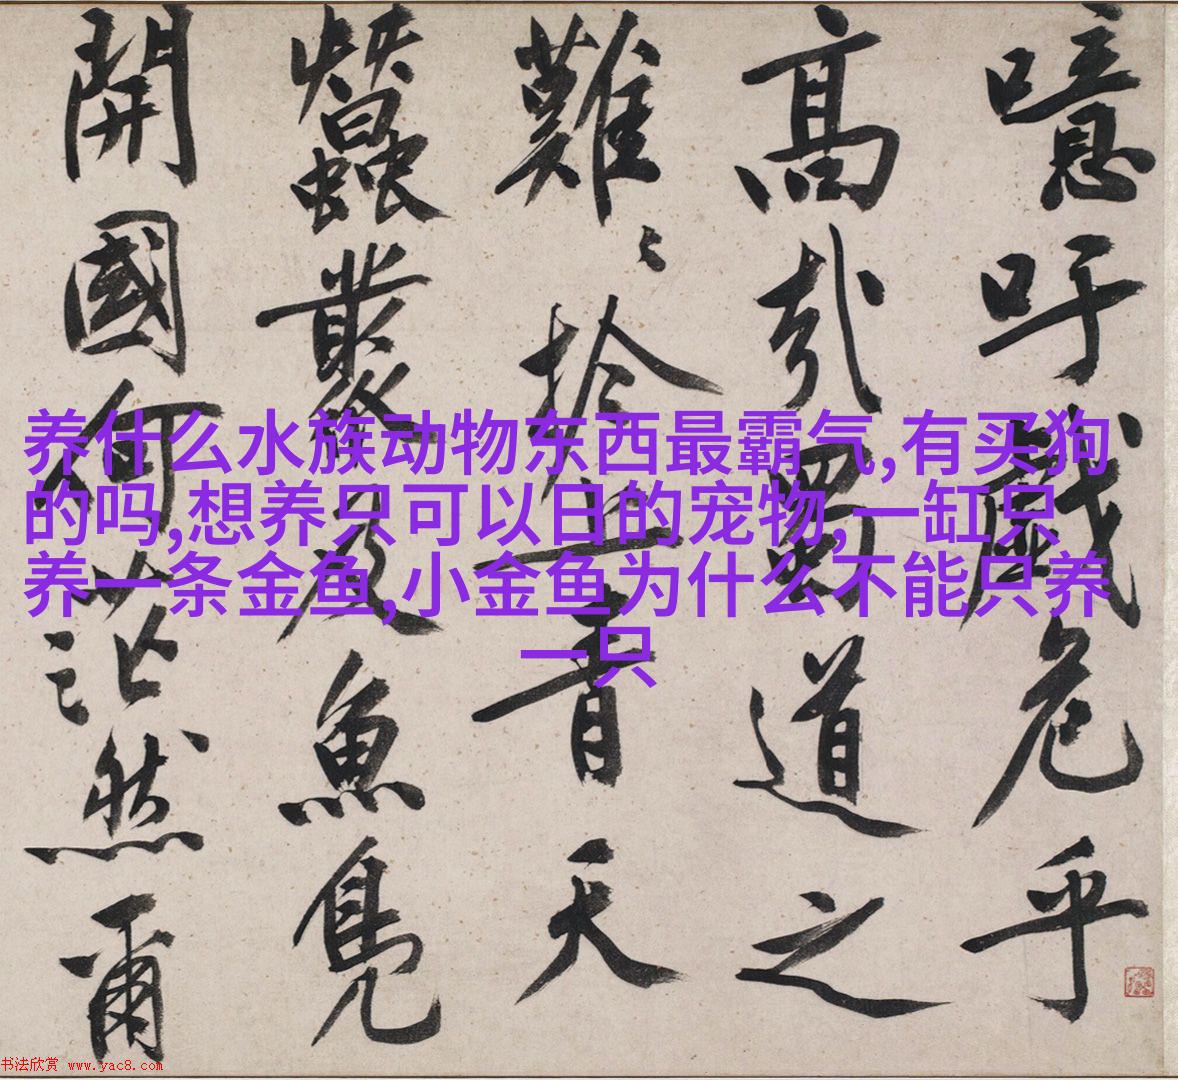 养什么水族动物东西最霸气,有买狗
的吗,想养只可以日的宠物,一缸只
养一条金鱼,小金鱼为什么不能只养
一只
噫吁戲危乎
高哉蜀道之
難〻於上青天
蠶叢及魚鳧
開國何茫然爾
书法欣赏 www.yac8.com